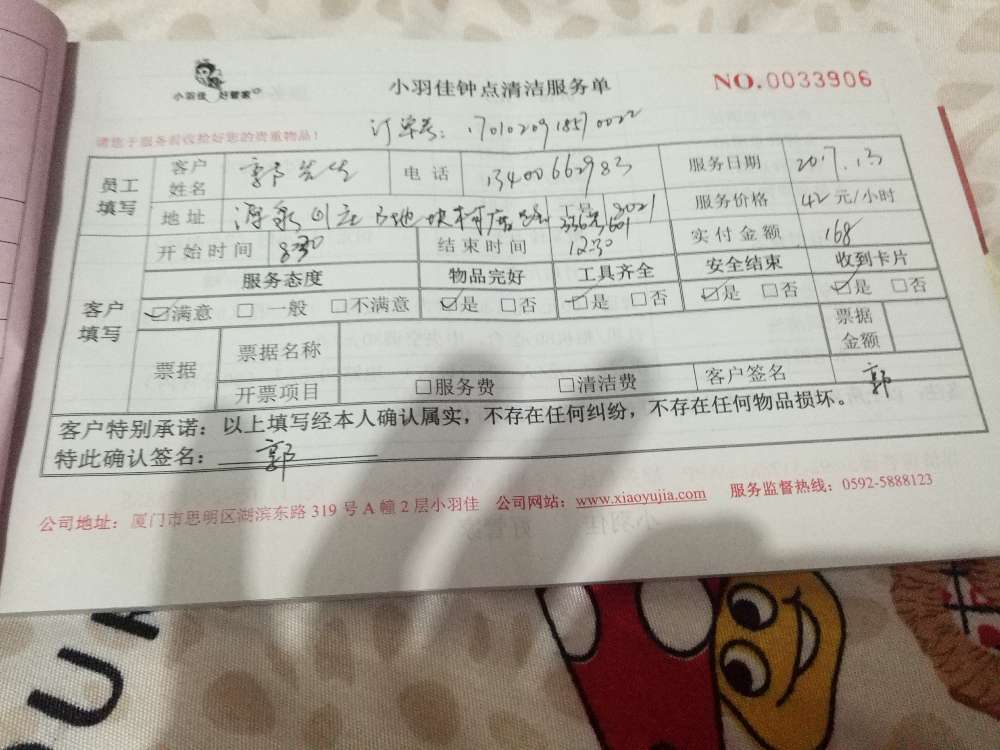 小羽佳 好管家
小羽佳钟点清洁服务单
NO.0033906
订单号：
请您于服务前收捡好您的贵重物品！
员工填写 客户姓名 郭先生 电话 13400662983 服务日期 2017.1.3
地址 工号 3021 服务价格 42元/小时
336号601
开始时间 8:30 结束时间 12:30 实付金额 168
客户填写 服务态度 物品完好 工具齐全 安全结束 收到卡片
☑满意 □一般 □不满意 ☑是 □否 ☑是 □否 ☑是 □否 ☑是 □否
票据 票据名称 票据金额
开票项目 □服务费 □清洁费 客户签名 郭
客户特别承诺：以上填写经本人确认属实，不存在任何纠纷，不存在任何物品损坏。
特此确认签名：郭
公司地址：厦门市思明区湖滨东路 319 号 A 幢 2 层小羽佳 公司网站：www.xiaoyujia.com 服务监督热线：0592-5888123